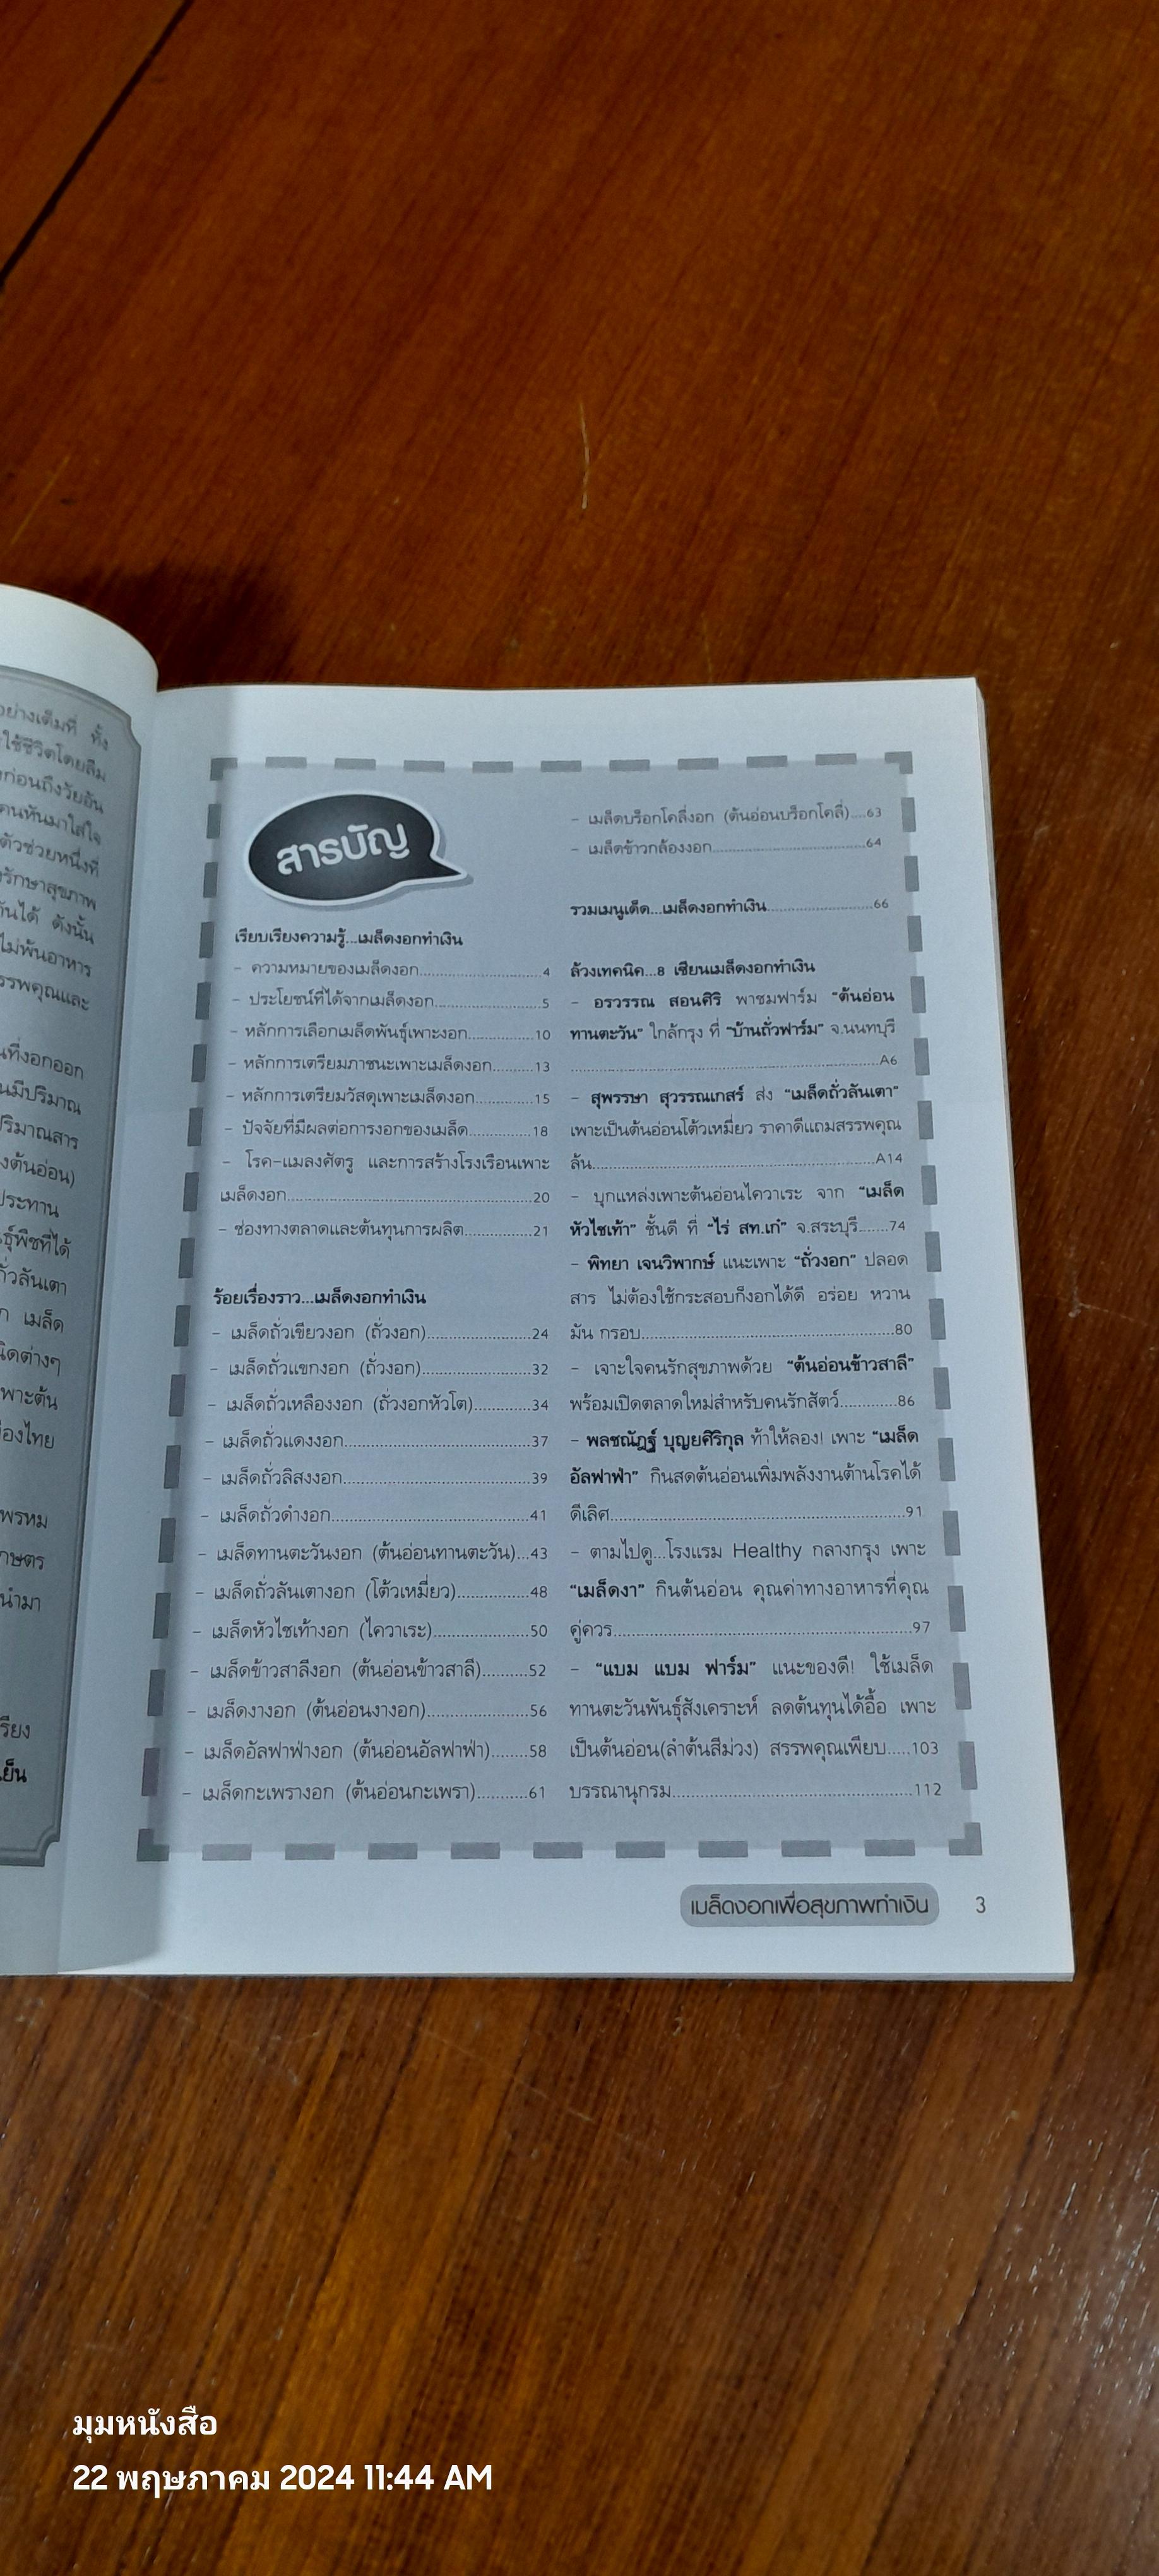 อย่างเต็มที่ ทั้ง
ใช้ชีวิตโดยลืม
ก่อนถึงวัยอัน
คนหันมาใส่ใจ
ตัวช่วยหนึ่งที่
รักษาสุขภาพ
กันได้ ดังนั้น
ไม่พ้นอาหาร
สรรพคุณและ
ที่งอกออก
มีปริมาณ
ปริมาณสาร
ต้นอ่อน)
ประทาน
พืชที่ได้
ถั่วลันเตา
เมล็ด
ชนิดต่างๆ
เพาะต้น
เมืองไทย
สารบัญ
เรียบเรียงความรู้...เมล็ดงอกทำเงิน
- ความหมายของเมล็ดงอก..............................4
- ประโยชน์ที่ได้จากเมล็ดงอก..........................5
- หลักการเลือกเมล็ดพันธุ์เพาะงอก................10
- หลักการเตรียมภาชนะเพาะเมล็ดงอก..........13
- หลักการเตรียมวัสดุเพาะเมล็ดงอก..............15
- ปัจจัยที่มีผลต่อการงอกของเมล็ด...............18
- โรค-แมลงศัตรู และการสร้างโรงเรือนเพาะ
เมล็ดงอก..........................................................20
- ช่องทางตลาดและต้นทุนการผลิต................21
ร้อยเรื่องราว...เมล็ดงอกทำเงิน
- เมล็ดถั่วเขียวงอก (ถั่วงอก)........................24
- เมล็ดถั่วแขกงอก (ถั่วงอก).........................32
- เมล็ดถั่วเหลืองงอก (ถั่วงอกหัวโต).............34
- เมล็ดถั่วแดงงอก..........................................37
- เมล็ดถั่วลิสงงอก..........................................39
- เมล็ดถั่วดำงอก............................................41
- เมล็ดทานตะวันงอก (ต้นอ่อนทานตะวัน)...43
- เมล็ดถั่วลันเตางอก (โต้วเหมี่ยว)................48
- เมล็ดหัวไชเท้างอก (ไควาเระ).....................50
- เมล็ดข้าวสาลีงอก (ต้นอ่อนข้าวสาลี)..........52
- เมล็ดงางอก (ต้นอ่อนงางอก)......................56
- เมล็ดอัลฟาฟ่างอก (ต้นอ่อนอัลฟาฟ่า)........58
- เมล็ดกะเพรางอก (ต้นอ่อนกะเพรา)...........61
- เมล็ดบร็อกโคลี่งอก (ต้นอ่อนบร็อกโคลี่)....63
- เมล็ดข้าวกล้องงอก.....................................64
รวมเมนูเด็ด...เมล็ดงอกทำเงิน..........................66
ล้วงเทคนิค...8 เซียนเมล็ดงอกทำเงิน
- อรวรรณ สอนศิริ พาชมฟาร์ม “ต้นอ่อน
ทานตะวัน” ใกล้กรุง ที่ “บ้านถั่วฟาร์ม” จ.นนทบุรี
..........................................................................A6
- สุพรรษา สุวรรณเกสร์ ส่ง “เมล็ดถั่วลันเตา”
เพาะเป็นต้นอ่อนโต้วเหมี่ยว ราคาดีแถมสรรพคุณ
ล้น....................................................................A14
- บุกแหล่งเพาะต้นอ่อนไควาเระ จาก “เมล็ด
หัวไชเท้า” ชั้นดี ที่ “ไร่ สท.เก๋” จ.สระบุรี.......74
- พิทยา เจนวิพากษ์ แนะเพาะ “ถั่วงอก” ปลอด
สาร ไม่ต้องใช้กระสอบก็งอกได้ดี อร่อย หวาน
มัน กรอบ..........................................................80
- เจาะใจคนรักสุขภาพด้วย “ต้นอ่อนข้าวสาลี”
พร้อมเปิดตลาดใหม่สำหรับคนรักสัตว์.............86
- พลชณัฎฐ์ บุญยศิริกุล ท้าให้ลอง! เพาะ “เมล็ด
อัลฟาฟ่า” กินสดต้นอ่อนเพิ่มพลังงานต้านโรคได้
ดีเลิศ..................................................................91
- ตามไปดู...โรงแรม Healthy กลางกรุง เพาะ
“เมล็ดงา” กินต้นอ่อน คุณค่าทางอาหารที่คุณ
คู่ควร..................................................................97
- “แบม แบม ฟาร์ม” แนะของดี! ใช้เมล็ด
ทานตะวันพันธุ์สังเคราะห์ ลดต้นทุนได้อื้อ เพาะ
เป็นต้นอ่อน(ลำต้นสีม่วง) สรรพคุณเพียบ.....103
บรรณานุกรม.....................................................112
เมล็ดงอกเพื่อสุขภาพทำเงิน 3
มุมหนังสือ
22 พฤษภาคม 2024 11:44 AM